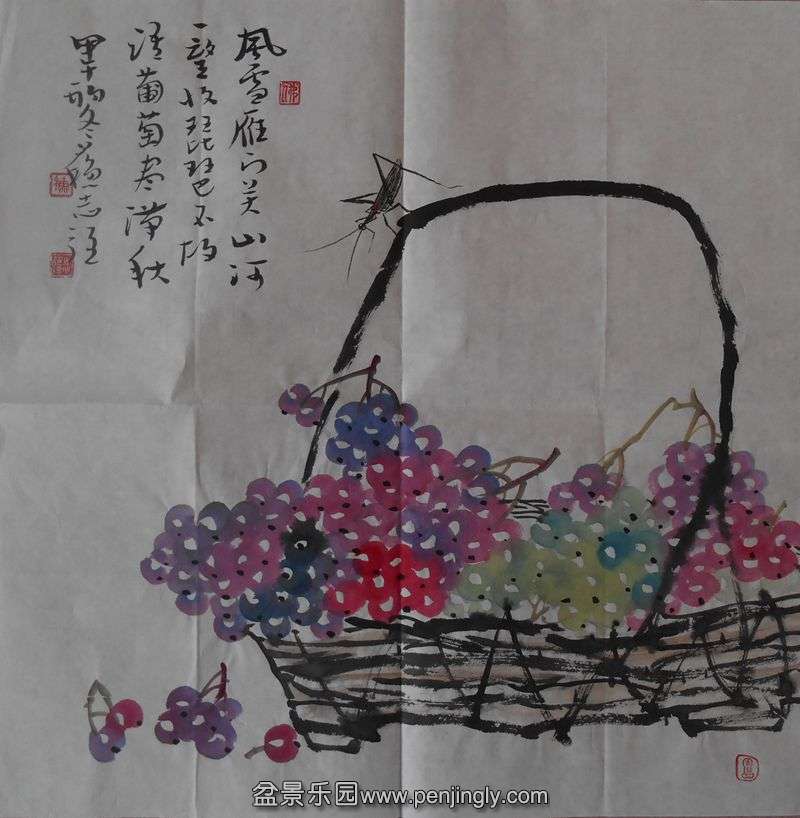 風雪雁门关山河
一望收琵琶不胡
语葡萄尽漢秋
甲午初冬志
盆景乐园www.penjingly.com